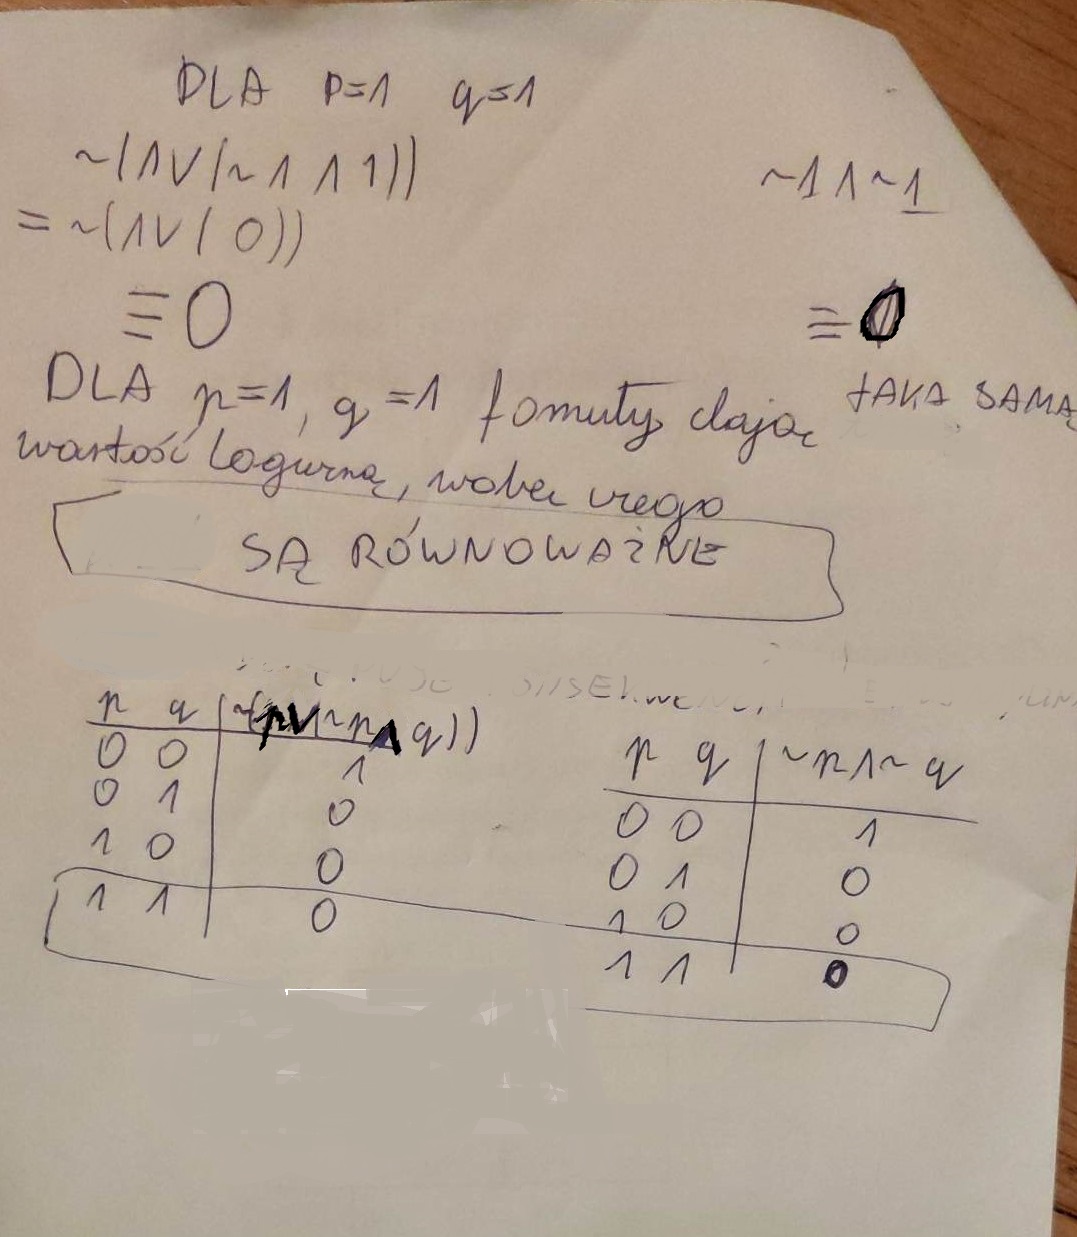 DLA P=1 q=1
~(1∨(~1 ∧ 1)) ~1∧~1
= ~(1∨( 0))
≡ 0 ≡ 0
DLA p=1, q=1 fomuły dają TAKA SAMĄ
wartość logiczną, wobec czego
SĄ RÓWNOWAŻNE
p q ~(p∨(~p∧q))
0 0 1
0 1 0
1 0 0
1 1 0
p q ~p∧~q
0 0 1
0 1 0
1 0 0
1 1 0